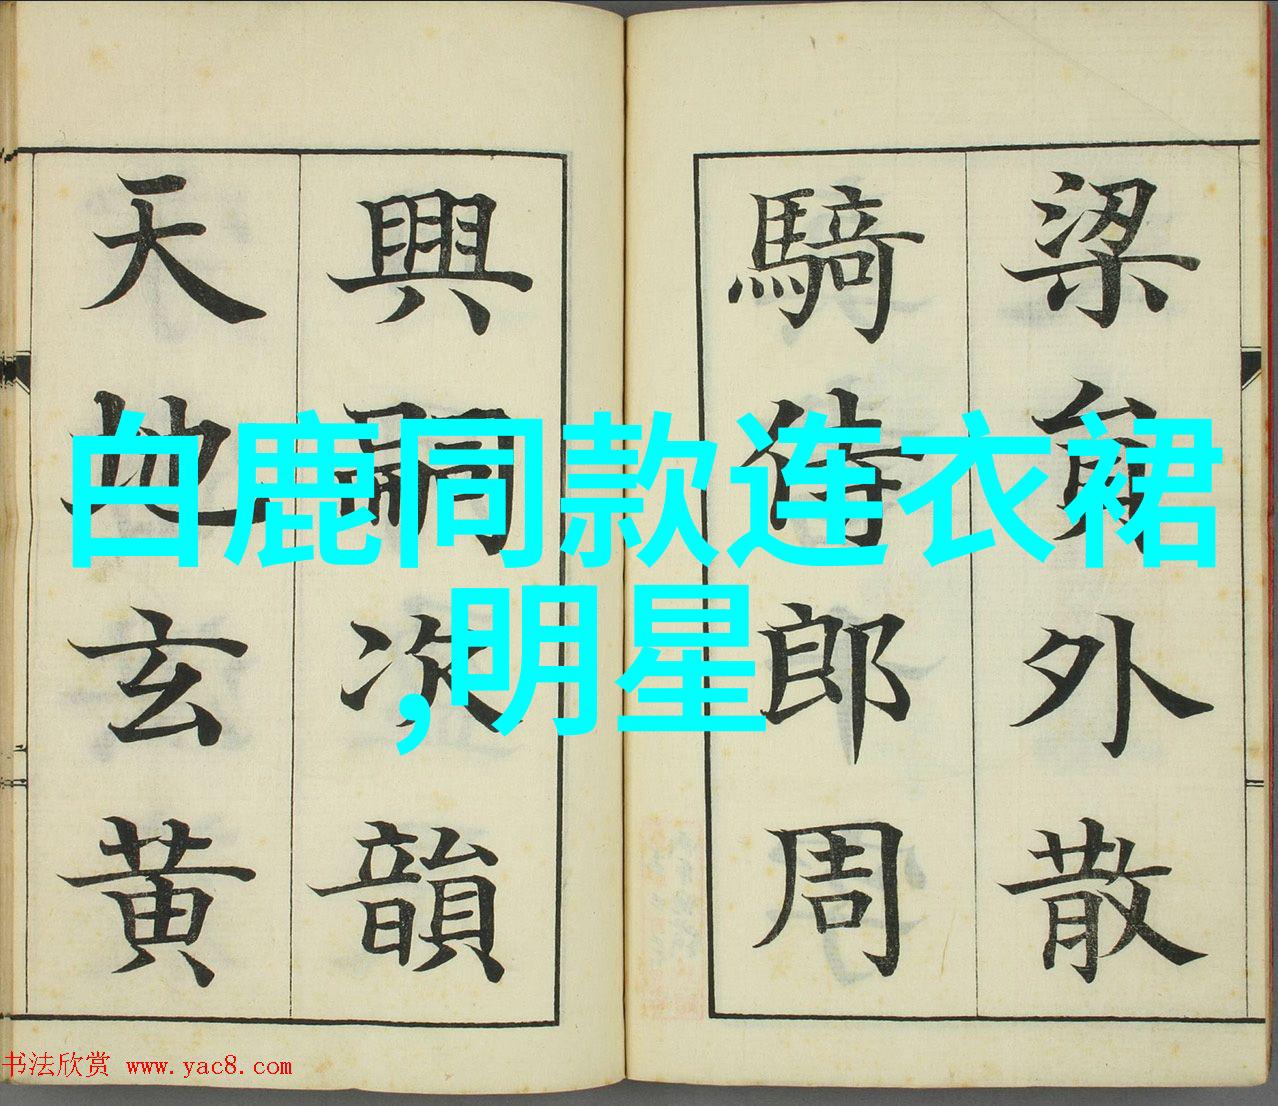 梁員外散
騎侍郎周
興嗣次韻
天地玄黄
白鹿同款连衣裙
,明星
书法欣赏 www.yac8.com